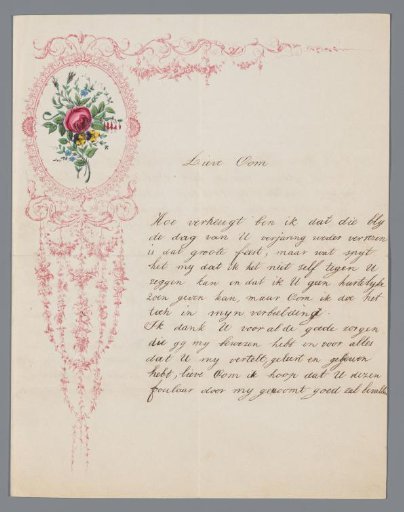 Lieve Oom
Hoe verheugt ben ik dat die bly
de dag van U verjaring weder verrezen
is dat groote feest, maar wat spyt
het my dat ik het niet self tegen U
zeggen kan en dat ik U geen hartelyke
zoen geven kan, maar Oom ik doe het
toch in myn verbeelding.
Ik dank U voor al de goede zorgen
die gy my bewezen hebt en voor alles
dat U my vertelt, geleert en gegeven
hebt, lieve Oom ik hoop dat U dezen
foulaar door my gezoomt goed zal